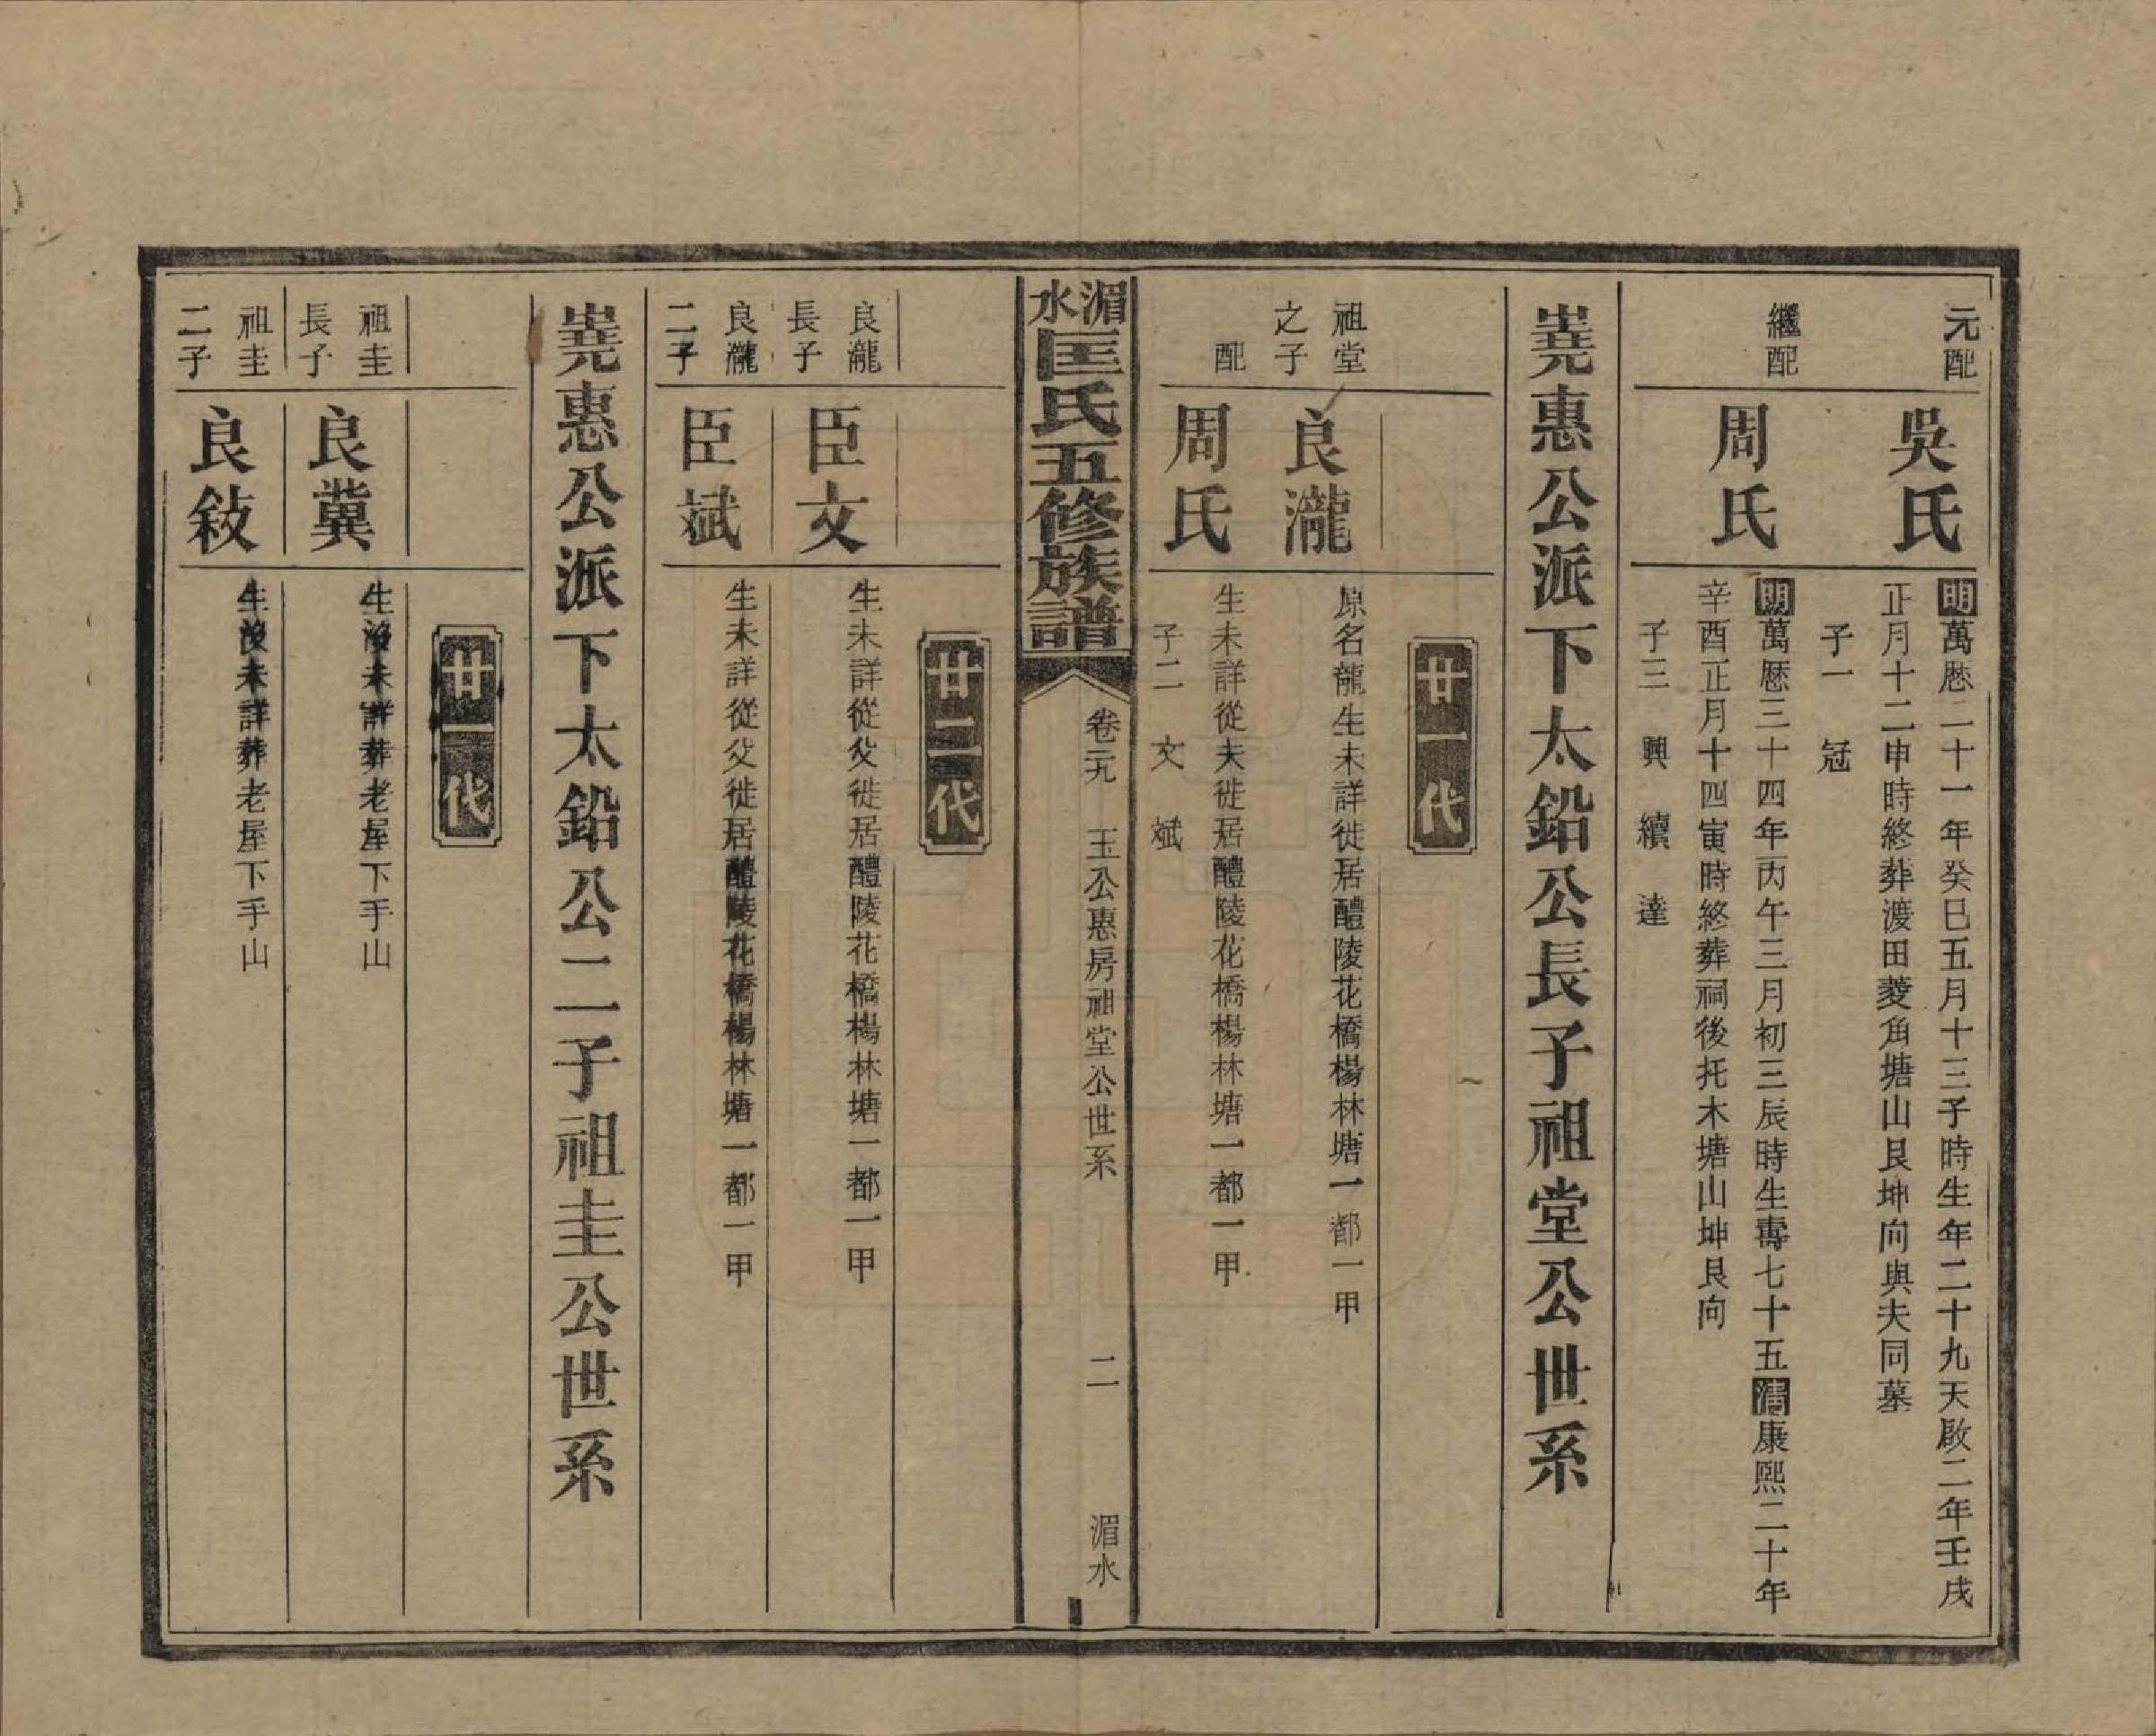 元配
吳氏
明萬厯二十一年癸巳五月十三子時生年二十九天啟二年壬戌
正月十二申時終葬渡田菱角塘山艮坤向與夫同墓
子一 冠
繼配
周氏
明萬厯三十四年丙午三月初三辰時生壽七十五清康熙二十年
辛酉正月十四寅時終葬祠後托木塘山坤艮向
子三 興 續 達
嵬惠公派下太鉛公長子祖堂公世系
廿一代
祖堂
之子
良瀧
原名龍生未詳徙居醴陵花橋楊林塘一都一甲
配
周氏
生未詳從夫徙居醴陵花橋楊林塘一都一甲
子二 文 斌
湄水
匡氏五修族譜
卷元九 玉公惠房祖堂公世系 二 湄水
廿二代
良瀧
長子
臣文
生未詳從父徙居醴陵花橋楊林塘一都一甲
良瀧
二子
臣斌
生未詳從父徙居醴陵花橋楊林塘一都一甲
嵬惠公派下太鉛公二子祖圭公世系
廿一代
祖圭
長子
良冀
生沒未詳葬老屋下手山
祖圭
二子
良敍
生沒未詳葬老屋下手山